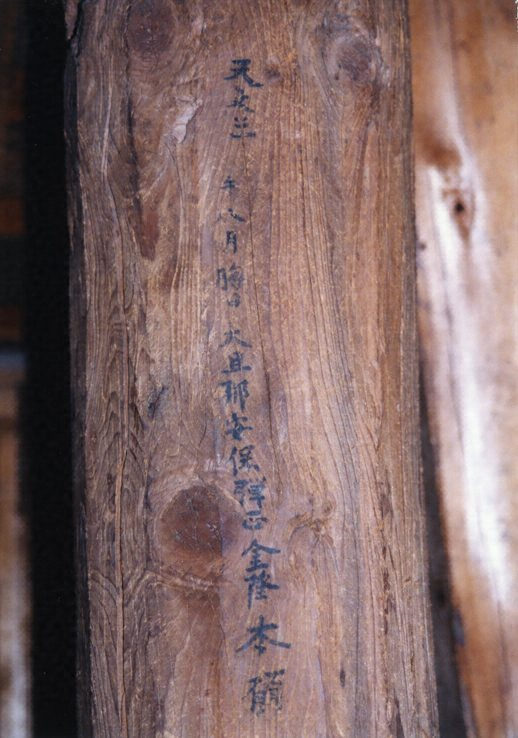 天文三 午八月晦日大旦那安保弾正全隆 本願